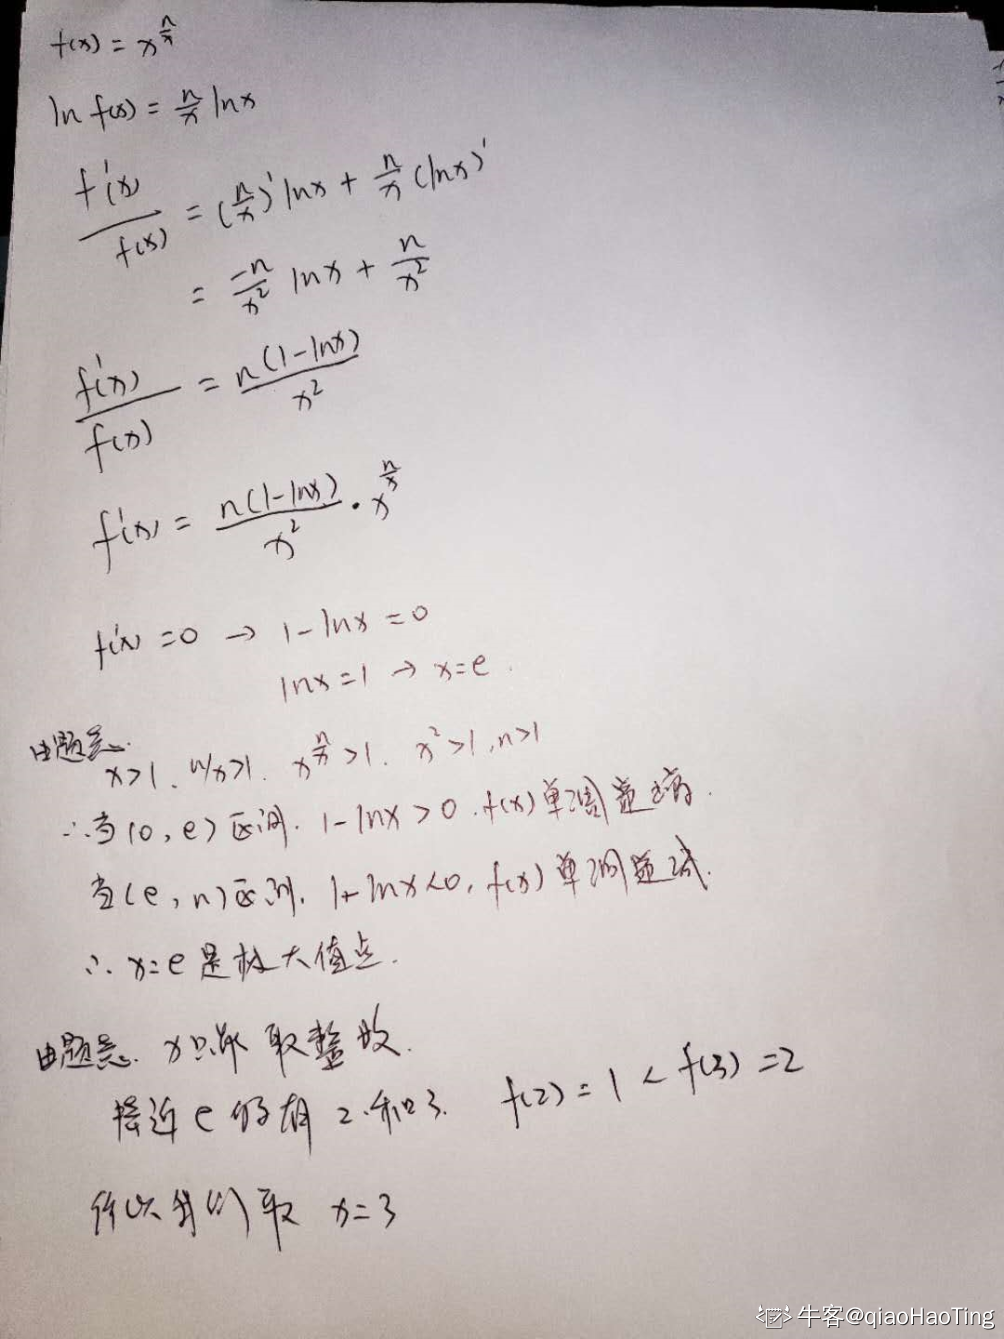 f(x) = x^{\frac{n}{x}}
ln f(x) = \frac{n}{x} lnx
\frac{f'(x)}{f(x)} = (\frac{n}{x})' lnx + \frac{n}{x} (lnx)'
= \frac{-n}{x^2} lnx + \frac{n}{x^2}
\frac{f'(x)}{f(x)} = \frac{n(1-lnx)}{x^2}
f'(x) = \frac{n(1-lnx)}{x^2} · x^{\frac{n}{x}}
f'(x) = 0 → 1-lnx = 0
lnx = 1 → x = e.
由题意.
x>1. n/x>1. x^{\frac{n}{x}}>1. x^2>1, n>1
∴当(0, e)区间. 1-lnx>0. f(x)单调递增.
当(e, n)区间. 1-lnx<0, f(x)单调递减.
∴ x=e 是极大值点.
由题意. x只能取整数.
接近e的有2.和3. f(2) = 1 < f(3) = 2
所以我们取 x=3
牛客@qiaoHaoTing